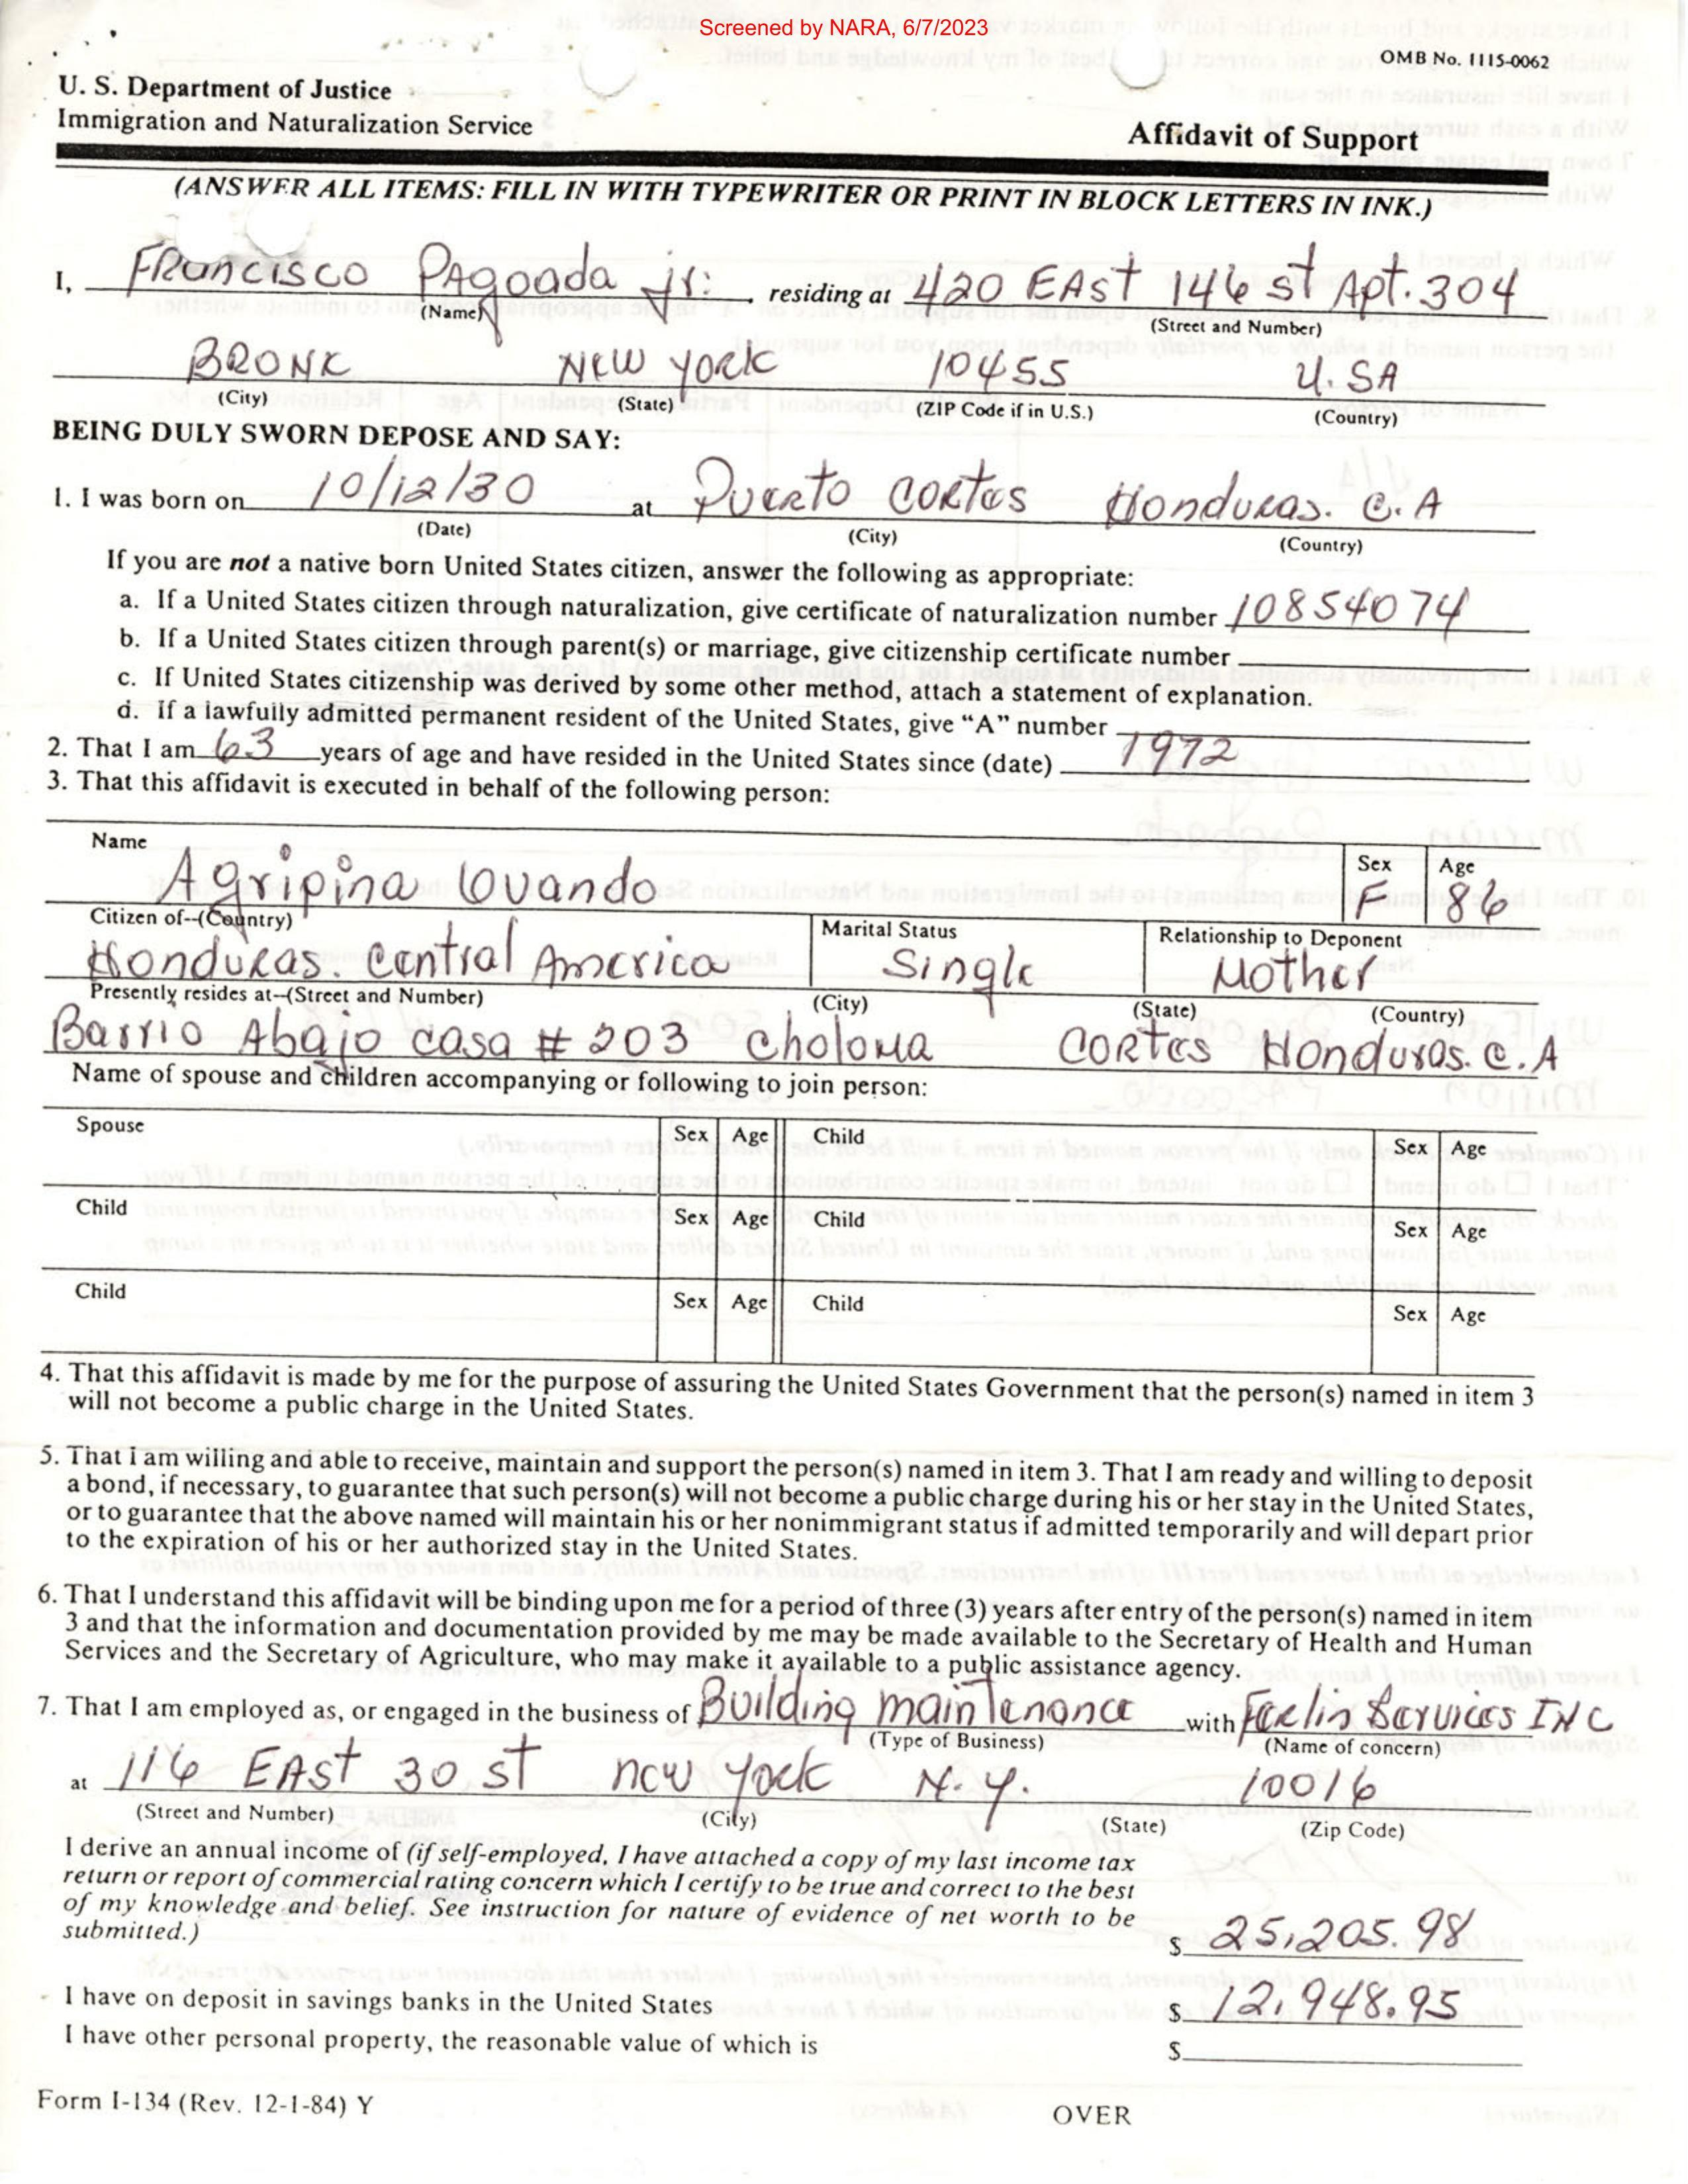 Screened by NARA, 6/7/2023
OMB No. 1115-0062
U. S. Department of Justice
Immigration and Naturalization Service
Affidavit of Support
(ANSWER ALL ITEMS: FILL IN WITH TYPEWRITER OR PRINT IN BLOCK LETTERS IN INK.)
I, Francisco Pagoada Jr. residing at 420 EAst 146 st Apt. 304
(Name) (Street and Number)
BRONX New york 10455 U.SA
(City) (State) (ZIP Code if in U.S.) (Country)
BEING DULY SWORN DEPOSE AND SAY:
1. I was born on 10/12/30 at Puerto Cortes Honduras. C.A
(Date) (City) (Country)
If you are not a native born United States citizen, answer the following as appropriate:
a. If a United States citizen through naturalization, give certificate of naturalization number 10854074
b. If a United States citizen through parent(s) or marriage, give citizenship certificate number
c. If United States citizenship was derived by some other method, attach a statement of explanation.
d. If a lawfully admitted permanent resident of the United States, give “A” number
2. That I am 63 years of age and have resided in the United States since (date) 1972
3. That this affidavit is executed in behalf of the following person:
Name Sex Age
Agripina Ovando F 86
Citizen of--(Country) Marital Status Relationship to Deponent
Honduras Central America Single Mother
Presently resides at--(Street and Number) (City) (State) (Country)
Barrio Abajo casa # 203 Choloma CORTES Honduras. C.A
Name of spouse and children accompanying or following to join person:
Spouse Sex Age Child Sex Age
Child Sex Age Child Sex Age
Child Sex Age Child Sex Age
4. That this affidavit is made by me for the purpose of assuring the United States Government that the person(s) named in item 3
will not become a public charge in the United States.
5. That I am willing and able to receive, maintain and support the person(s) named in item 3. That I am ready and willing to deposit
a bond, if necessary, to guarantee that such person(s) will not become a public charge during his or her stay in the United States,
or to guarantee that the above named will maintain his or her nonimmigrant status if admitted temporarily and will depart prior
to the expiration of his or her authorized stay in the United States.
6. That I understand this affidavit will be binding upon me for a period of three (3) years after entry of the person(s) named in item
3 and that the information and documentation provided by me may be made available to the Secretary of Health and Human
Services and the Secretary of Agriculture, who may make it available to a public assistance agency.
7. That I am employed as, or engaged in the business of Building maintenance with Services INC
(Type of Business) (Name of concern)
at 116 EAst 30 st new york N.Y. 10016
(Street and Number) (City) (State) (Zip Code)
I derive an annual income of (if self-employed, I have attached a copy of my last income tax
return or report of commercial rating concern which I certify to be true and correct to the best
of my knowledge and belief. See instruction for nature of evidence of net worth to be
submitted.) $ 25,205.98
I have on deposit in savings banks in the United States $ 12,948.95
I have other personal property, the reasonable value of which is $
Form I-134 (Rev. 12-1-84) Y OVER